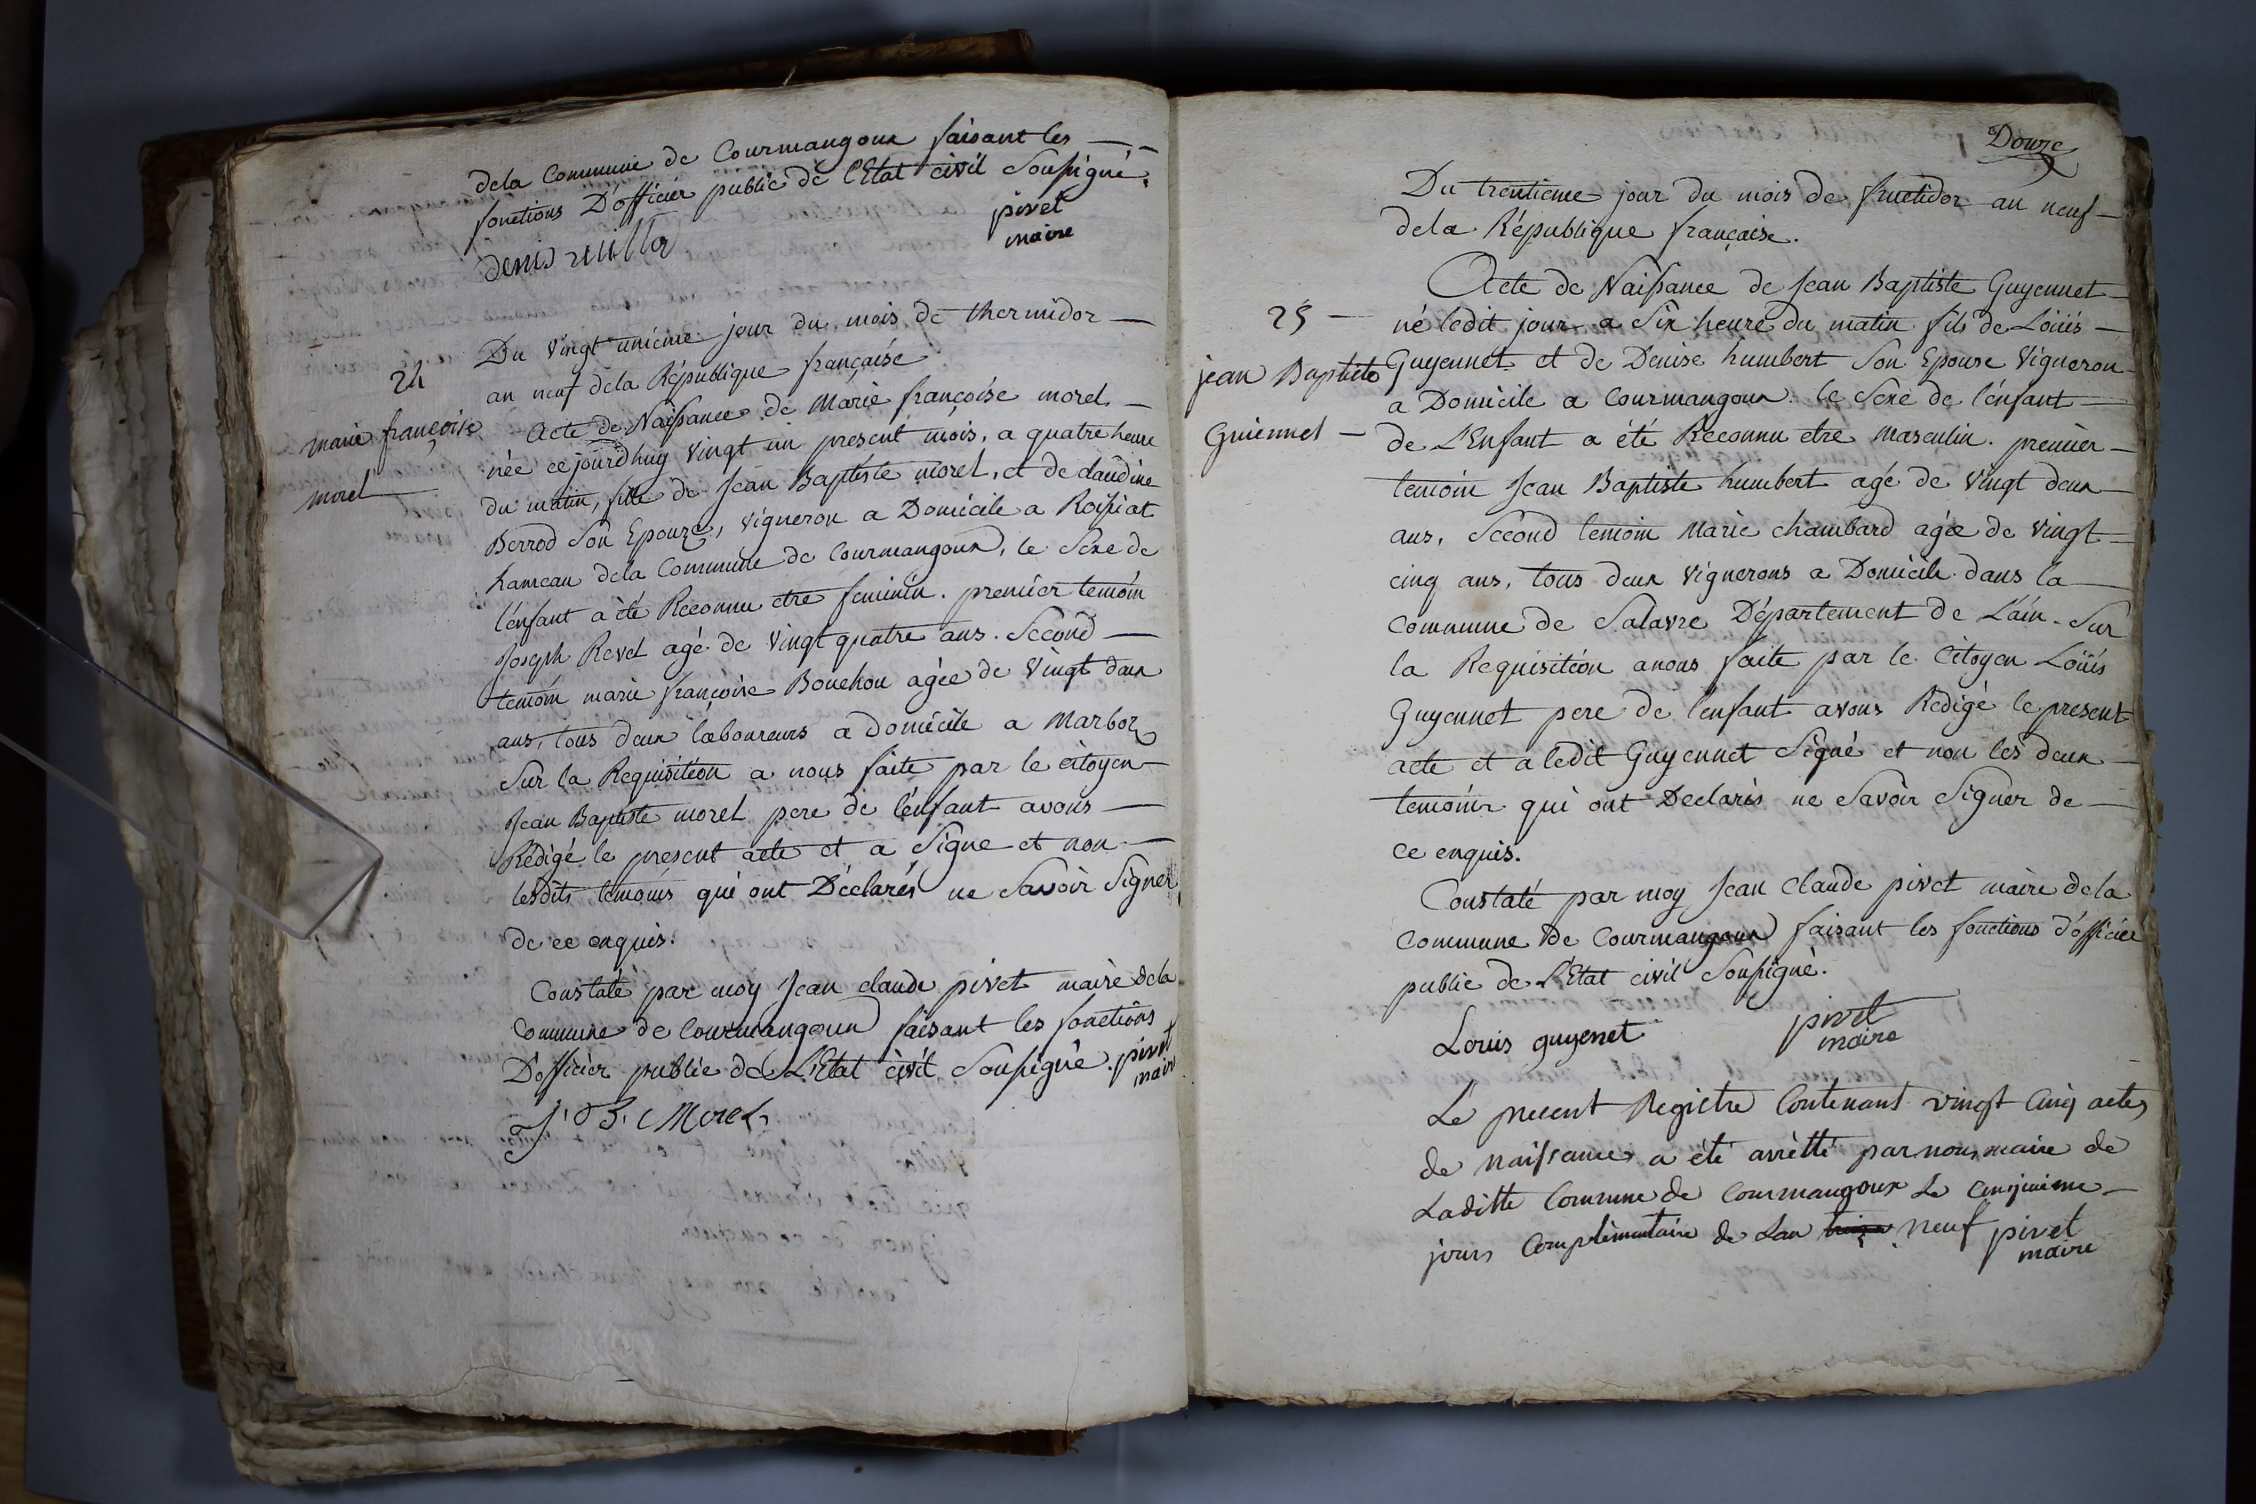 dela Commune de Courmangoux faisant les
fonctions D'officier public de l'Etat civil Soussigné.
pivet
maire
denis
Du vingt unieme jour du mois de thermidor
an neuf dela République française
24
marie françoise
morel
Acte de Naissance de Marie françoise morel
née cejourdhuy vingt un present mois, a quatre heure
du matin, fille de Jean Baptiste morel, et de claudine
Berrod son Epouze, vigneron a Domicile a Roissiat
hameau dela Commune de Courmangoux, le Sexe de
l'enfant a été Reconnu etre feminin. premier temoin
Joseph Revel agé de vingt quatre ans. Second
temoin marie françoise Bouchou agée de vingt deux
ans, tous deux laboureurs a domicile a Marboz
Sur la Requisition a nous faite par le citoyen
Jean Baptiste morel pere de l'enfant avons
Rédigé le present acte et a Signe et non
lesdits temoins qui ont Déclarés ne Savoir Signer
de ce enquis.
Constaté par moy Jean claude pivet maire dela
Commune de Courmangoux faisant les fonctions
D'officier public de L'Etat civil Soussigné. pivet
maire
J. B. Morel
Douze
Du trentieme jour du mois de fructidor an neuf
dela République française.
25
jean Baptiste
Guiennet
Acte de Naissance de Jean Baptiste Guyennet
né ledit jour a Six heure du matin fils de Loüis
Guyennet et de Denise humbert Son Epouse Vigneron
a Domicile a Courmangoux. le Sexe de l'enfant
de L'Enfant a été Reconnu etre masculin. premier
temoin Jean Baptiste humbert agé de Vingt deux
ans, Second temoin Marie chambard agée de vingt
cinq ans, tous deux Vignerons a Domicile dans la
Commune de Salavre Département de L'ain. Sur
la Requisition anous faite par le Citoyen Loüis
Guyennet pere de l'enfant avons Rédigé le present
acte et a ledit Guyennet Signé et non les deux
temoins qui ont Declarés ne Savoir Signer de
ce enquis.
Constaté par moy Jean Claude pivet maire dela
Commune de Courmangoux faisant les fonctions d'officier
public de L'Etat civil Soussigné.
Louis guyenet
pivet
maire
Le present Registre Contenant vingt Cinq actes
de naissances a été arrètté par nous maire de
Laditte Commune de Courmangoux Le Cinquieme
jours Complèmentaire de Lan neuf pivet
maire